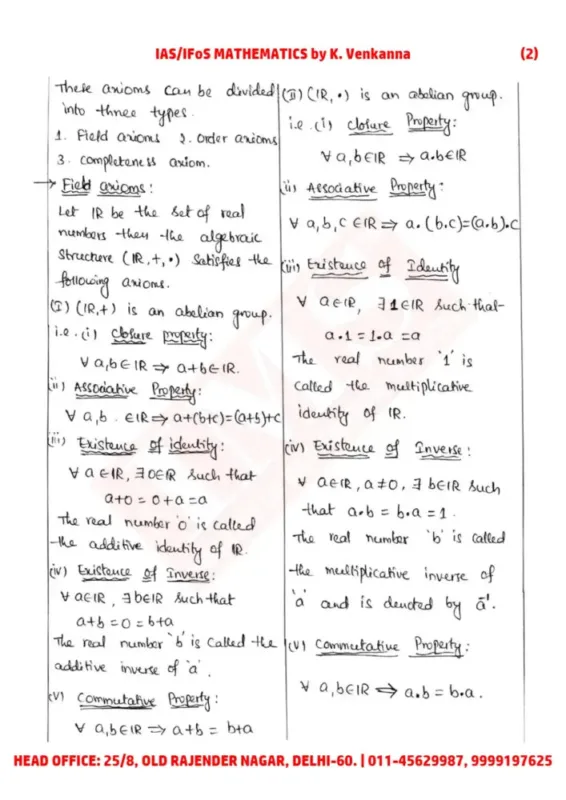 IAS/IFoS MATHEMATICS by K. Venkanna (2)
These axioms can be divided
into three types.
1. Field axioms 2. order axioms
3. completeness axiom.
→ Field axioms:
Let IR be the set of real
numbers then the algebraic
structure (IR,+,•) satisfies the
following axioms.
(I) (IR,+) is an abelian group.
i.e. (i) closure property:
∀ a,b∈IR ⇒ a+b∈IR.
(ii) Associative Property:
∀ a,b. ∈IR ⇒ a+(b+c)=(a+b)+c
(iii) Existence of identity:
∀ a∈IR, ∃ 0∈IR such that
a+0 = 0+a = a
The real number '0' is called
the additive identity of IR.
(iv) Existence of Inverse:
∀ a∈IR, ∃ b∈IR such that
a+b = 0 = b+a
The real number 'b' is called the
additive inverse of 'a'.
(V) Commutative Property:
∀ a,b∈IR ⇒ a+b = b+a
(II) (IR, •) is an abelian group.
i.e (i) closure Property:
∀ a,b∈IR ⇒ a•b∈IR
(ii) Associative Property:
∀ a,b,c ∈IR ⇒ a.(b.c)=(a.b).c
(iii) Existence of Identity
∀ a∈IR, ∃ 1∈IR such that
a•1 = 1•a = a
The real number '1' is
called the multiplicative
identity of IR.
(iv) Existence of Inverse:
∀ a∈IR, a≠0, ∃ b∈IR such
that a•b = b•a = 1.
The real number 'b' is called
the multiplicative inverse of
'a' and is denoted by a⁻¹.
(V) Commutative Property:
∀ a,b∈IR ⇒ a•b = b•a.
HEAD OFFICE: 25/8, OLD RAJENDER NAGAR, DELHI-60. | 011-45629987, 9999197625